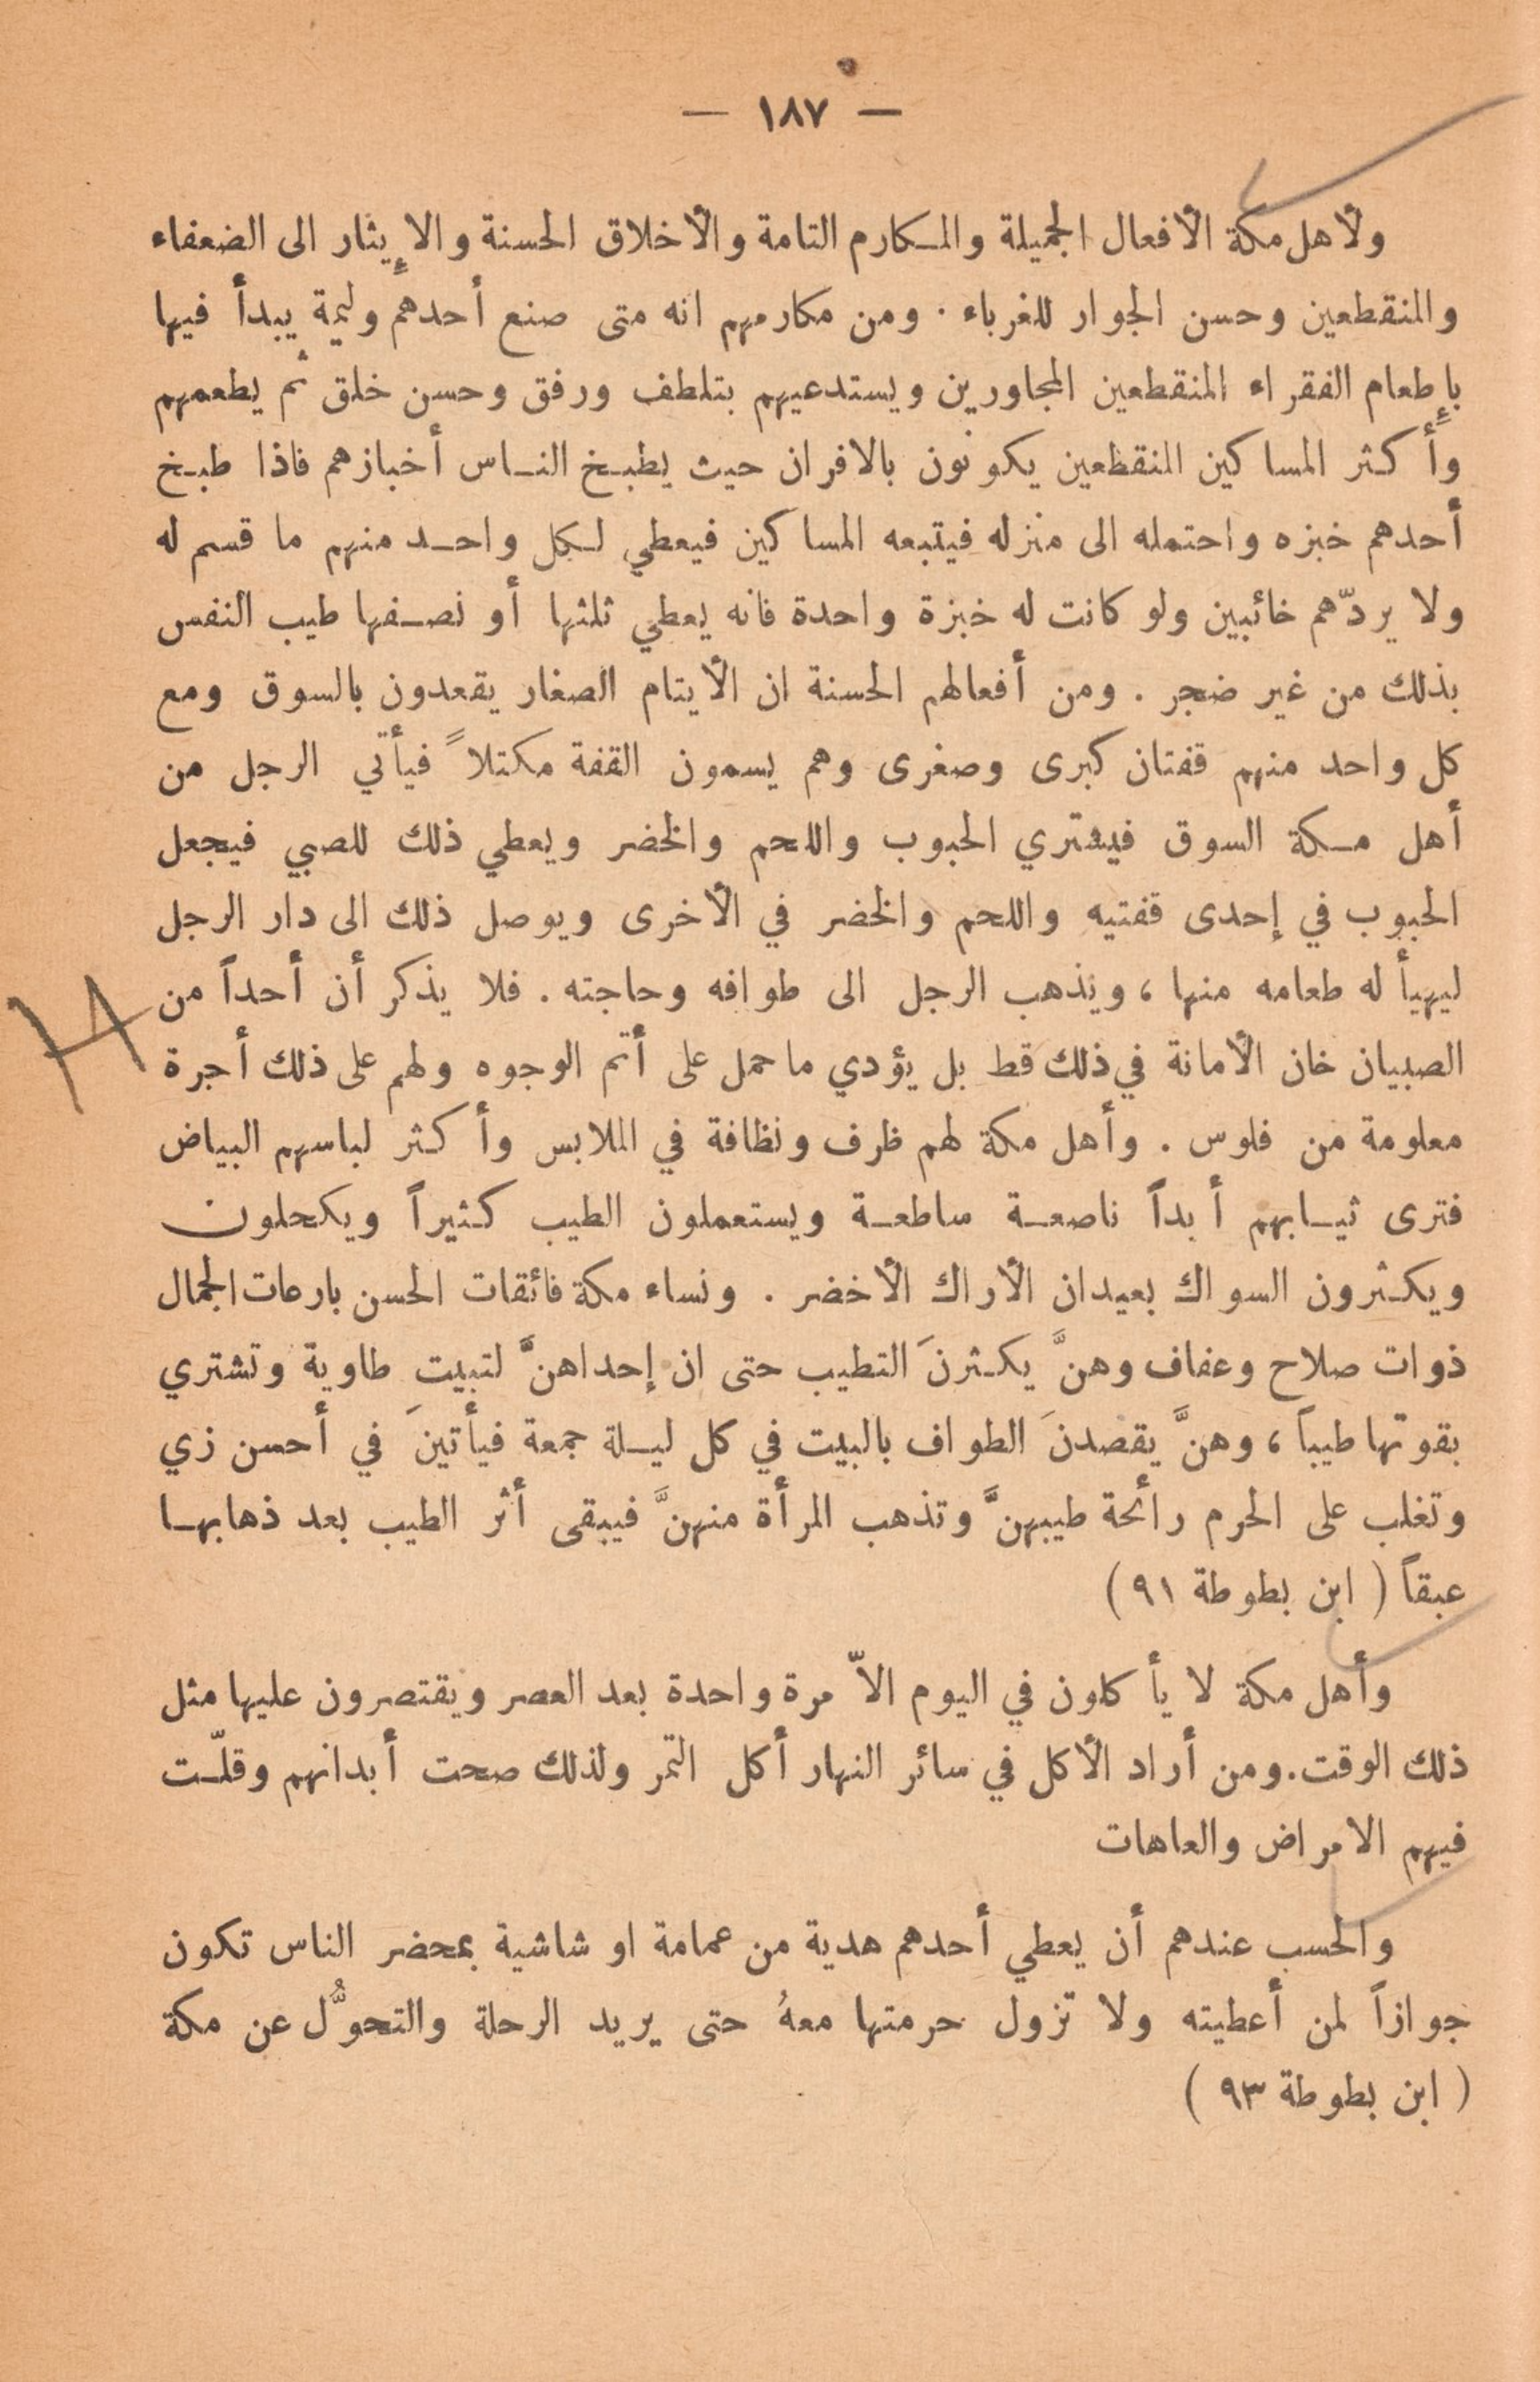 — ١٨٧ —
ولأهل مكة الأفعال الجميلة والمكارم التامة والأخلاق الحسنة والإيثار الى الضعفاء
والمنقطعين وحسن الجوار للغرباء . ومن مكارمهم انه متى صنع أحدهم وليمة يبدأ فيها
بإطعام الفقراء المنقطعين المجاورين ويستدعيهم بتلطف ورفق وحسن خلق ثم يطعمهم
وأكثر المساكين المنقطعين يكونون بالافران حيث يطبخ الناس أخبازهم فاذا طبخ
أحدهم خبزه واحتمله الى منزله فيتبعه المساكين فيعطي لكل واحد منهم ما قسم له
ولا يردّهم خائبين ولو كانت له خبزة واحدة فانه يعطي ثلثها أو نصفها طيب النفس
بذلك من غير ضجر . ومن أفعالهم الحسنة ان الأيتام الصغار يقعدون بالسوق ومع
كل واحد منهم قفتان كبرى وصغرى وهم يسمون القفة مكتلاً فيأتي الرجل من
أهل مكة السوق فيشتري الحبوب واللحم والخضر ويعطي ذلك للصبي فيجعل
الحبوب في إحدى قفتيه واللحم والخضر في الأخرى ويوصل ذلك الى دار الرجل
ليهيأ له طعامه منها ، ويذهب الرجل الى طوافه وحاجته . فلا يذكر أن أحداً من
الصبيان خان الأمانة في ذلك قط بل يؤدي ما حمل على أتم الوجوه ولهم على ذلك أجرة
معلومة من فلوس . وأهل مكة لهم ظرف ونظافة في الملابس وأكثر لباسهم البياض
فترى ثيابهم أبداً ناصعة ساطعة ويستعملون الطيب كثيراً ويكحلون
ويكثرون السواك بعيدان الأراك الأخضر . ونساء مكة فائقات الحسن بارعات الجمال
ذوات صلاح وعفاف وهنَّ يكثرنَ التطيب حتى ان إحداهنَّ لتبيتَ طاوية وتشتري
بقوتها طيباً ، وهنَّ يقصدنَ الطواف بالبيت في كل ليلة جمعة فيأتينَ في أحسن زي
وتغلب على الحرم رائحة طيبهنَّ وتذهب المرأة منهنَّ فيبقى أثر الطيب بعد ذهابها
عبقاً ( ابن بطوطة ٩١ )
وأهل مكة لا يأكلون في اليوم الاّ مرة واحدة بعد العصر ويقتصرون عليها مثل
ذلك الوقت. ومن أراد الأكل في سائر النهار أكل التمر ولذلك صحت أبدانهم وقلّت
فيهم الامراض والعاهات
والحسب عندهم أن يعطي أحدهم هدية من عمامة او شاشية بمحضر الناس تكون
جوازاً لمن أعطيته ولا تزول حرمتها معهُ حتى يريد الرحلة والتحوُّل عن مكة
( ابن بطوطة ٩٣ )